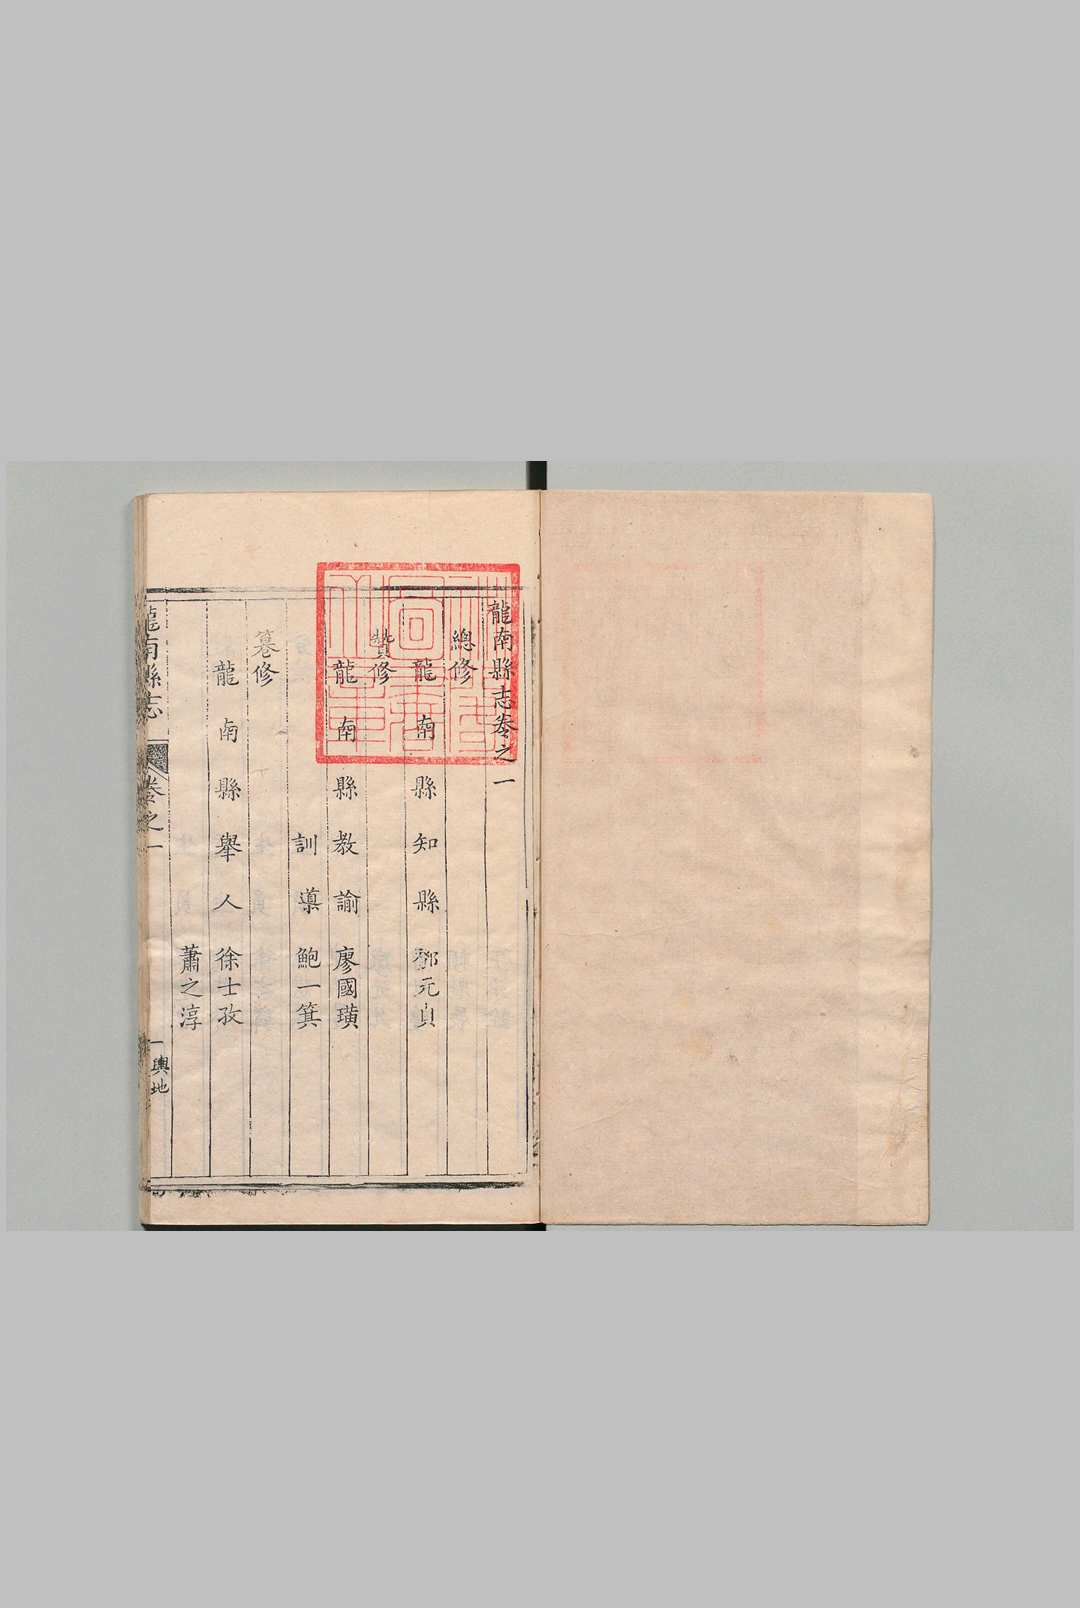 龍南縣志卷之一
總修
龍南縣知縣鄧元貞
贊修
龍南縣教諭廖國璜
訓導鮑一箕
纂修
龍南縣舉人徐士孜
蕭之淳
龍南縣志 卷之一 一 輿地